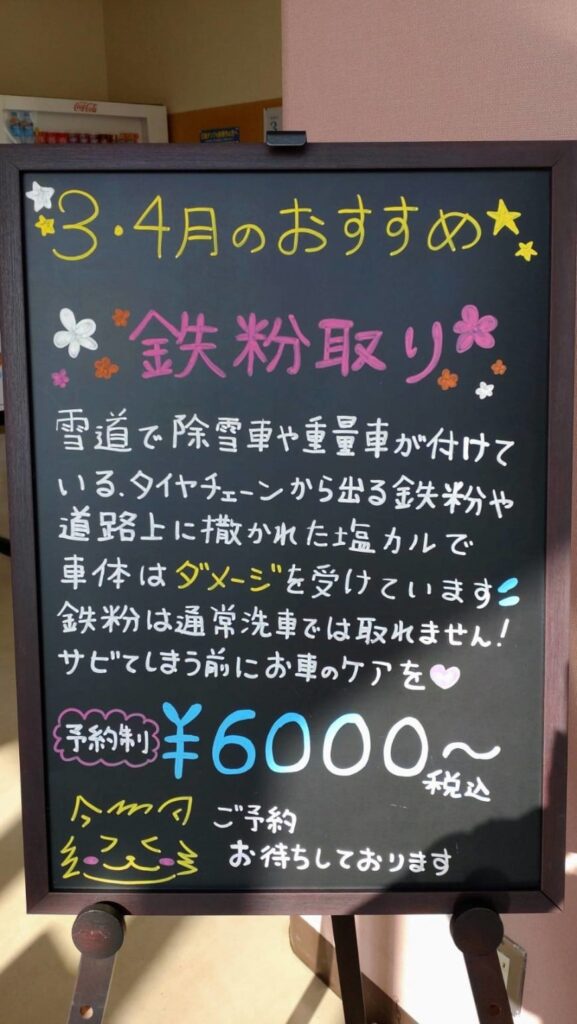 Coca-Cola
3・4月のおすすめ
鉄粉取り
雪道で除雪車や重量車が付けて
いる、タイヤチェーンから出る鉄粉や
道路上に撒かれた塩カルで
車体はダメージを受けています
鉄粉は通常洗車では取れません!
サビてしまう前にお車のケアを
予約制 ¥6000~
税込
ご予約
お待ちしております